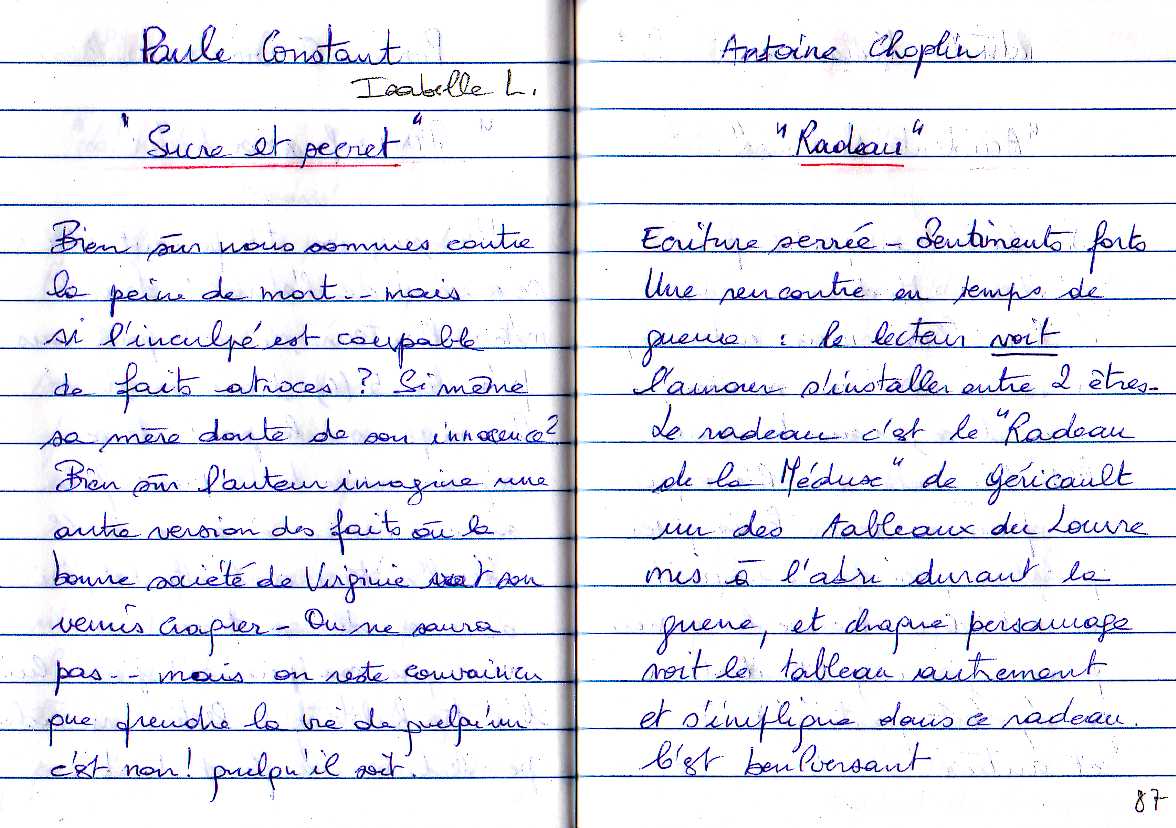 Paule Constant
Isabelle L.
"Sucre et secret"
Bien sûr nous sommes contre
la peine de mort... mais
si l'inculpé est coupable
de faits atroces ? Si même
sa mère doute de son innocence ?
Bien sûr l'auteur imagine une
autre version des faits où la
bonne société de Virginie voit son
vernis craquer - On ne saura
pas... mais on reste convaincu
que prendre la vie de quelqu'un
c'est non ! quelqu'il soit.
Antoine Choplin
"Radeau"
Ecriture serrée - Sentiments forts
Une rencontre en temps de
guerre : le lecteur voit
l'amour s'installer entre 2 êtres -
Le radeau c'est le "Radeau
de la Méduse" de Géricault
un des tableaux du Louvre
mis à l'abri durant la
guerre, et chaque personnage
voit le tableau autrement
et s'implique dans ce radeau.
C'est bouleversant
87